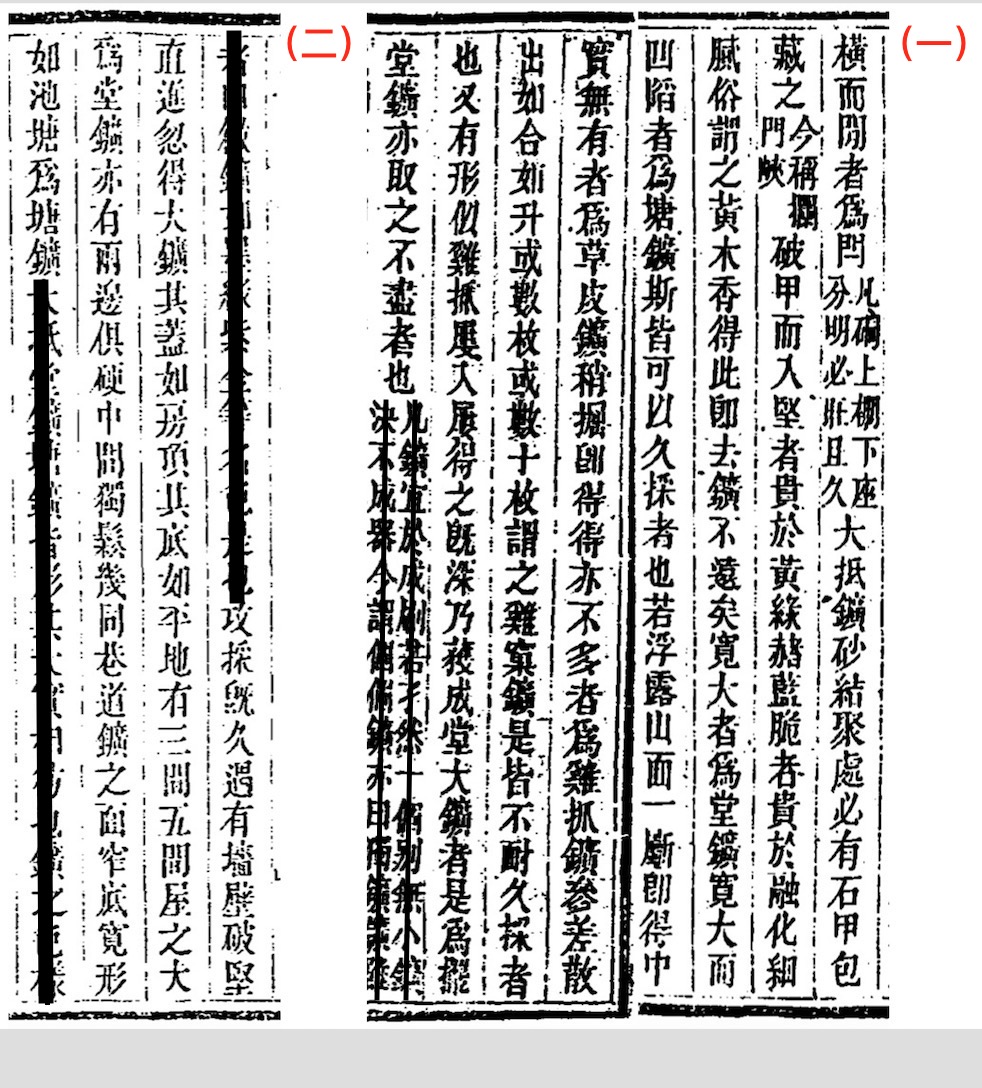 (一)
橫而閒者爲閂凡硐上棚下座
分明必旺且久大抵鑛砂結聚處必有石甲包
藏之今稱攔
門峽破甲而入堅者貴於黃綠赭藍脆者貴於融化細
膩俗謂之黃木香得此卽去鑛不遠矣寬大者爲堂鑛寬大而
凹陷者爲塘鑛斯皆可以久採者也若浮露山面一斸卽得中
實無有者爲草皮鑛稍掘卽得得亦不多者爲雞抓鑛參差散
出如合如升或數枚或數十枚謂之雞窠鑛是皆不耐久採者
也又有形似雞抓屢入屢得之旣深乃獲成堂大鑛者是爲擺
堂鑛亦取之不盡者也
凡鑛宜於成刷若孑然一個別無小鑛
決不成器今謂個個鑛亦曰獨鑛
(二)
攻採旣久遇有墻壁破堅
直進忽得大鑛其蓋如房頂其底如平地有三間五間屋之大
爲堂鑛亦有兩邊俱硬中間獨鬆幾同巷道鑛之面窄底寬形
如池塘爲塘鑛